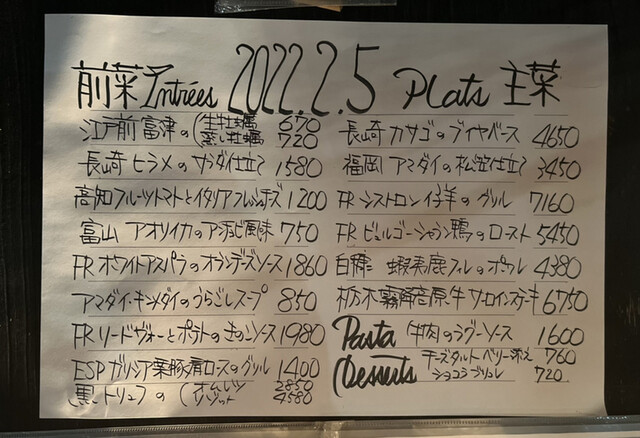 前菜 Entrées 2022.2.5 Plats 主菜
江戸前 富津の(生牡蠣 670
蒸し牡蠣 720
長崎 ヒラメのサラダ仕立て 1580
高知フルーツトマトとイタリアフレッシュチーズ 1200
富山 アオリイカのアンチョビ風味 750
FRホワイトアスパラのオランデーズソース 1860
アマダイ・キンメダイのうらごしスープ 850
FRリードヴォーとポテトのきのこソース 1980
ESP ガリシア栗豚肩ロースのグリル 1400
黒トリュフの(オムレツ 2850
リゾット 4580
長崎 カサゴのブイヤベース 4650
福岡 アマダイの松笠仕立て 3450
FR シストロン仔羊のグリル 7160
FR ビュルゴーシャラン鴨のロースト 5450
白糠 蝦夷鹿フィレのポワレ 4380
栃木霧降高原牛サーロインステーキ 6750
Pasta 牛肉のラグーソース 1600
Desserts チーズタルトベリー添え 760
ショコラブリュレ 720